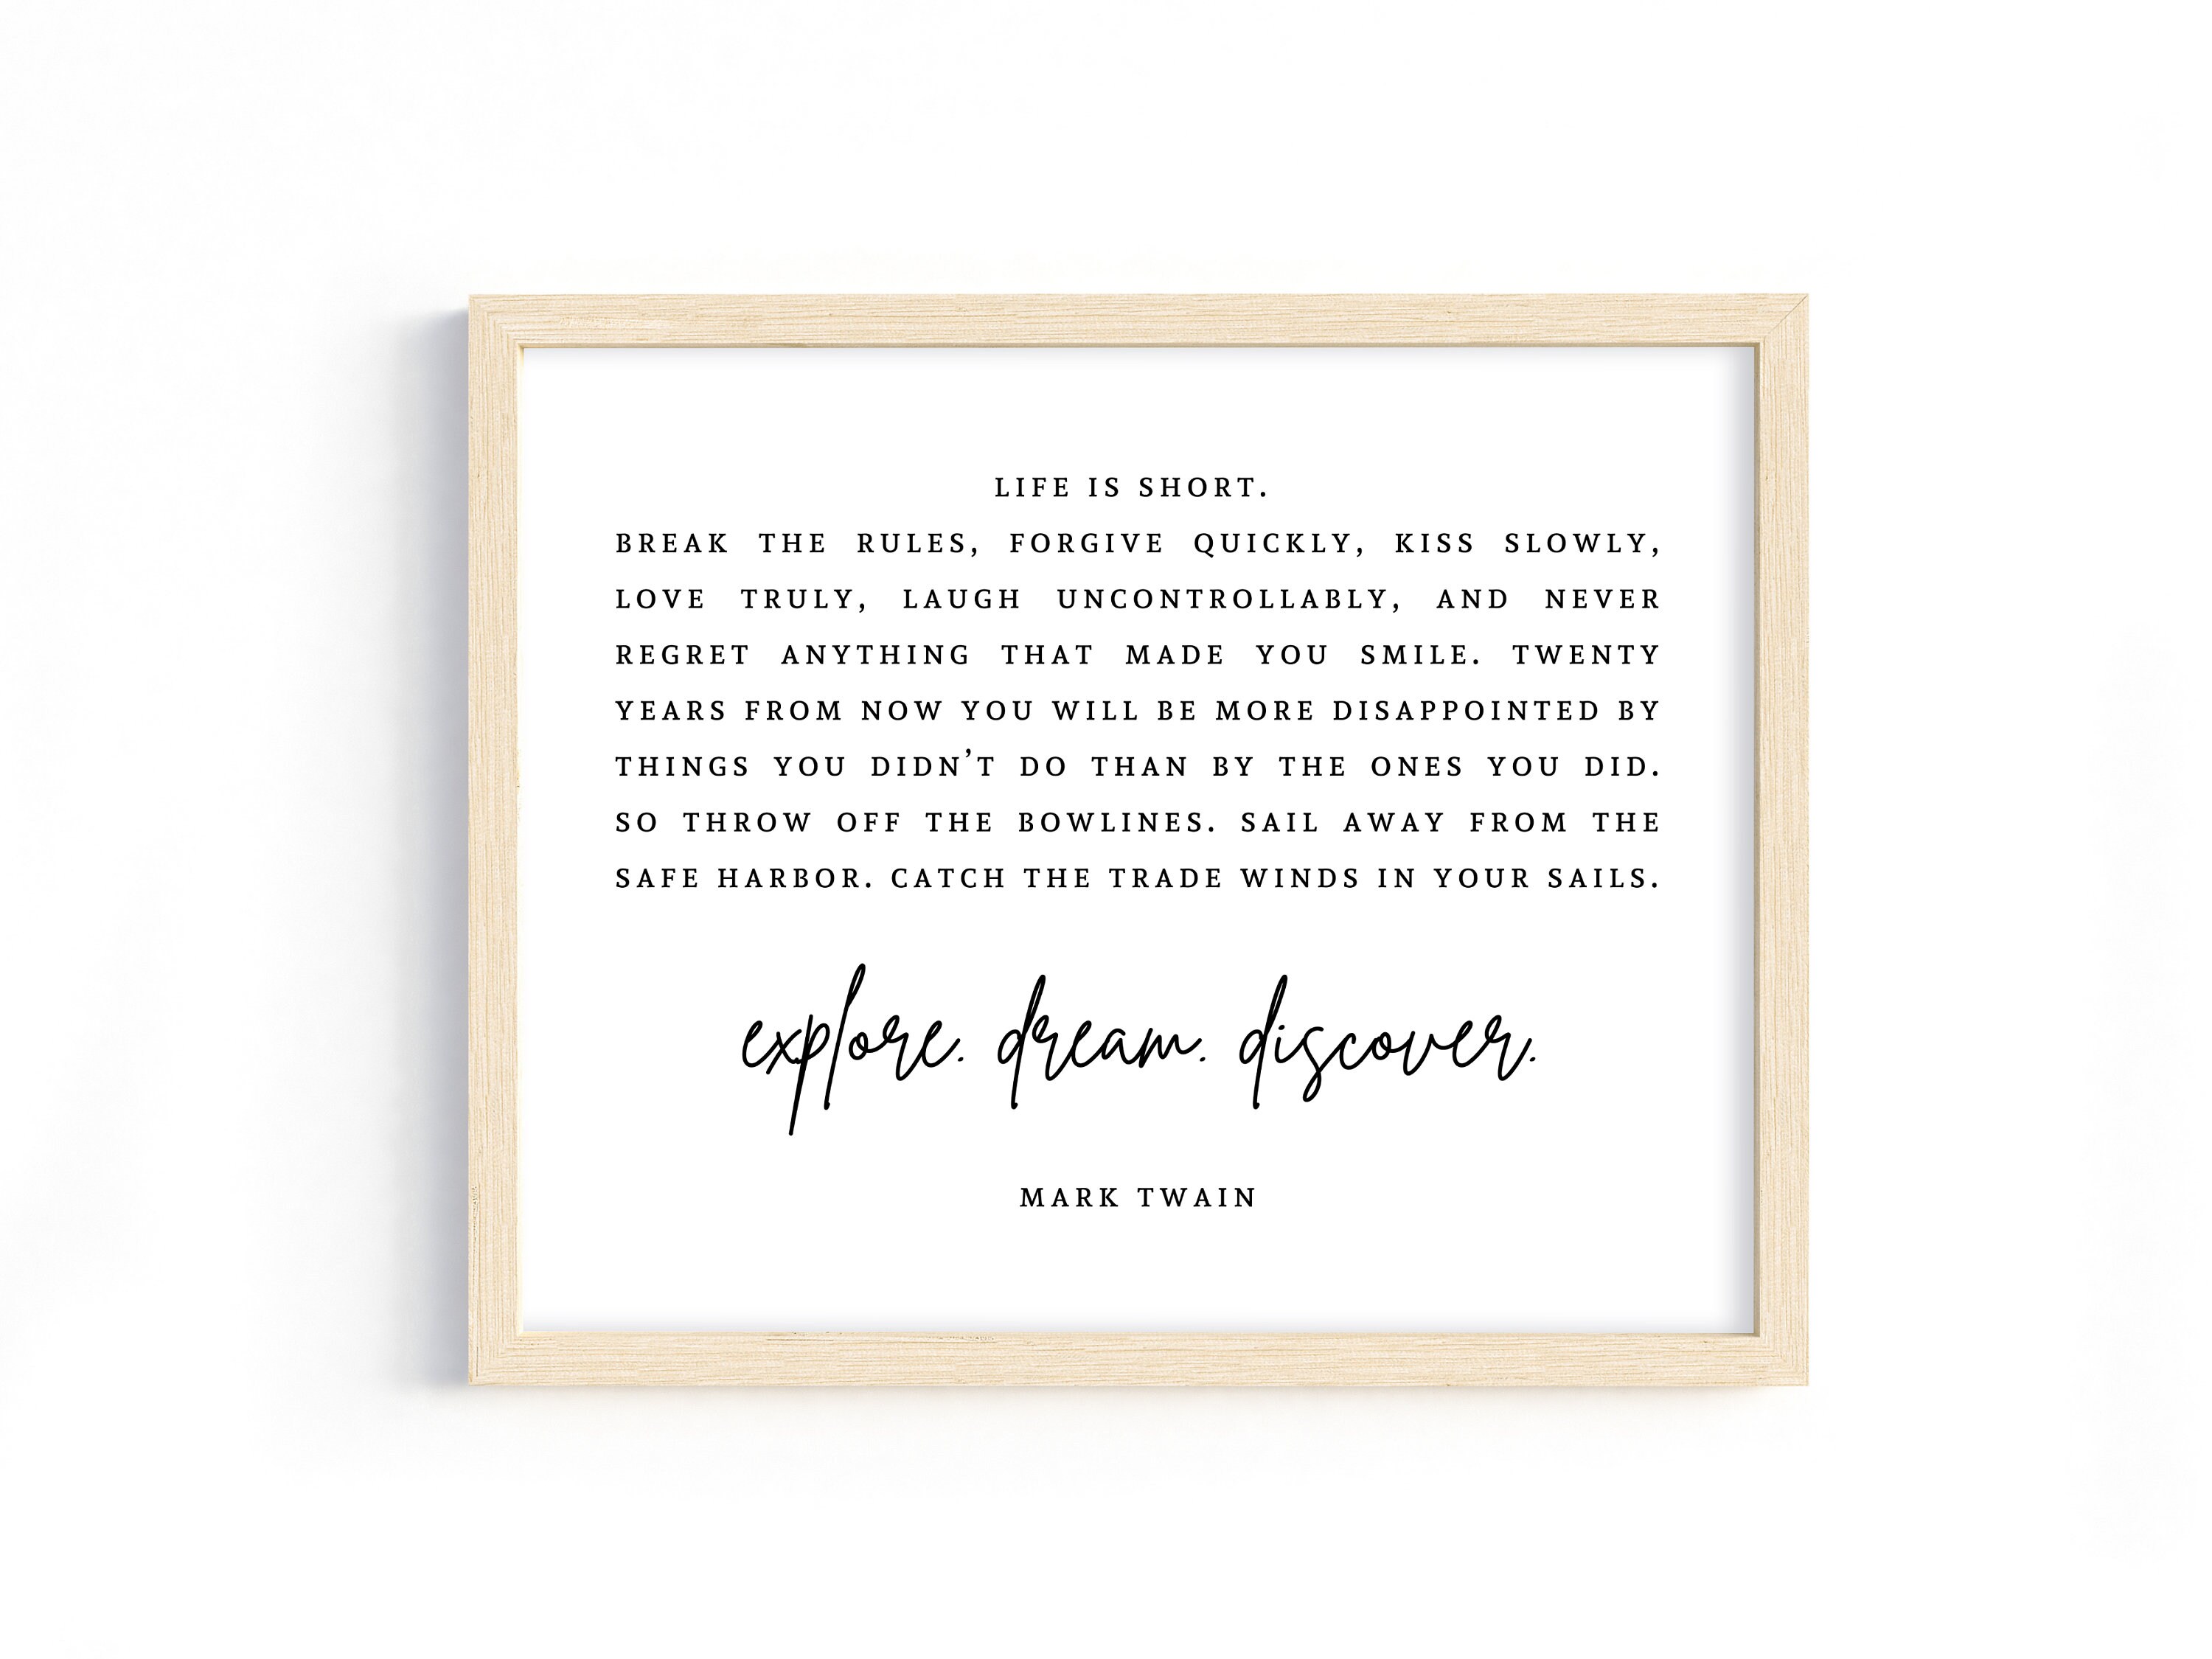 LIFE IS SHORT.
BREAK THE RULES, FORGIVE QUICKLY, KISS SLOWLY,
LOVE TRULY, LAUGH UNCONTROLLABLY, AND NEVER
REGRET ANYTHING THAT MADE YOU SMILE. TWENTY
YEARS FROM NOW YOU WILL BE MORE DISAPPOINTED BY
THINGS YOU DIDN’T DO THAN BY THE ONES YOU DID.
SO THROW OFF THE BOWLINES. SAIL AWAY FROM THE
SAFE HARBOR. CATCH THE TRADE WINDS IN YOUR SAILS.
explore. dream. discover.
MARK TWAIN